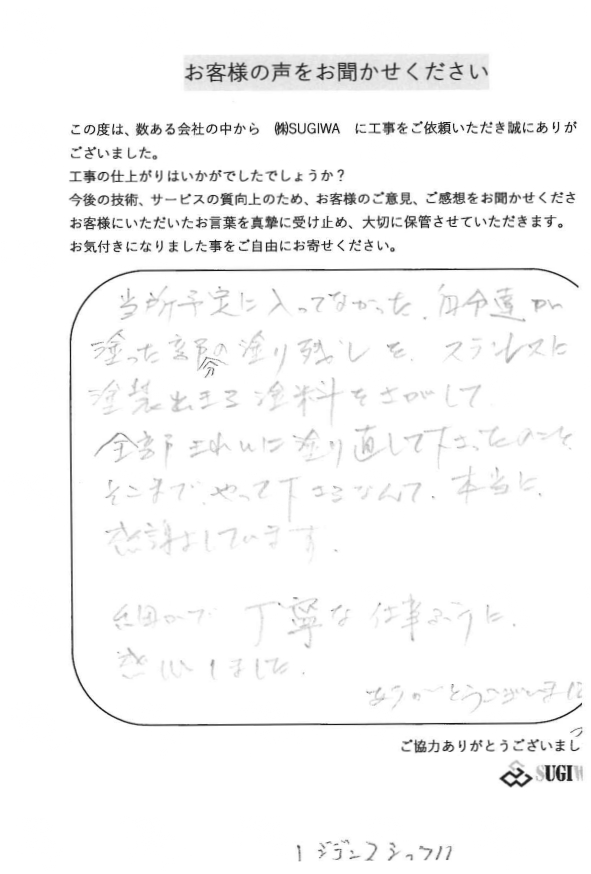 お客様の声をお聞かせください
この度は、数ある会社の中から　㈱SUGIWA　に工事をご依頼いただき誠にありが
ございました。
工事の仕上がりはいかがでしたでしょうか？
今後の技術、サービスの質向上のため、お客様のご意見、ご感想をお聞かせくださ
お客様にいただいたお言葉を真摯に受け止め、大切に保管させていただきます。
お気付きになりました事をご自由にお寄せください。
当所予定に入ってなかった、自分達が
塗った部分の塗り残しを、ステンレスに
塗装出来る塗料をさがして
全部きれいに塗り直して下さったのこと
そこまで、やって下さるなんて、本当に、
感謝しています。
細かで丁寧な仕事ぶりに、
感心しました。
ありがとうございました
ご協力ありがとうございまし
SUGIW